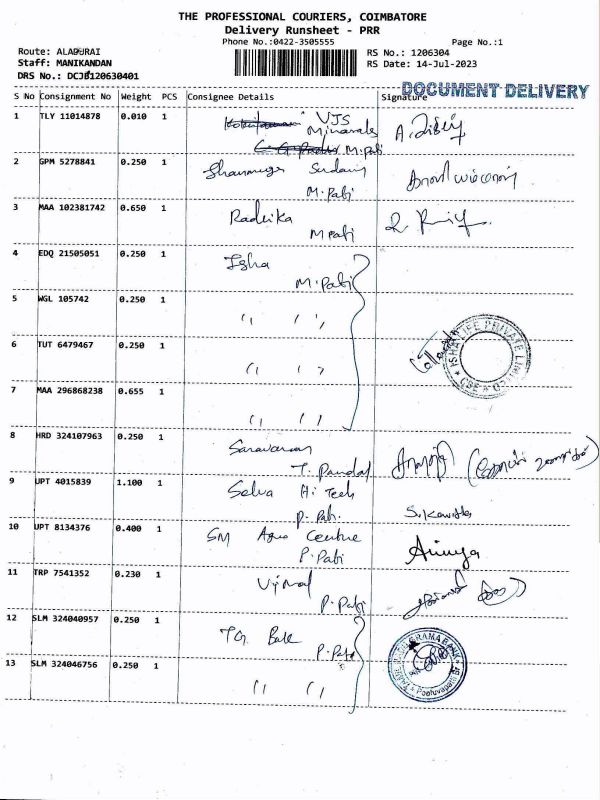 THE PROFESSIONAL COURIERS, COIMBATORE
Delivery Runsheet - PRR
Phone No.:0422-3505555 Page No.:1
Route: ALADURAI RS No.: 1206304
Staff: MANIKANDAN RS Date: 14-Jul-2023
DRS No.: DCJB120630401
DOCUMENT DELIVERY
S No Consignment No Weight PCS Consignee Details Signature
1 TLY 11014878 0.010 1 VJS
Minarals
M.Pati
2 GPM 5278841 0.250 1 Shanmuga
M.Pati
3 MAA 102381742 0.650 1 Radhika
M Pati
4 EDQ 21505051 0.250 1 Isha
M.Pati
5 WGL 105742 0.250 1 " "
6 TUT 6479467 0.250 1 " "
ISHA LIFE PRIVATE LIMITED
CBE
7 MAA 296868238 0.655 1 " "
8 HRD 324107963 0.250 1 Saravanan
9 UPT 4015839 1.100 1 Selva Hi Tech
P. Pati. S.Kavitha
10 UPT 8134376 0.400 1 SM Aqua Centre
P.Pati
11 TRP 7541352 0.230 1 Vimal
P.Pati
12 SLM 324040957 0.250 1 TG Bank
P.Pati
GRAMA BANK
13 SLM 324046756 0.250 1 " "